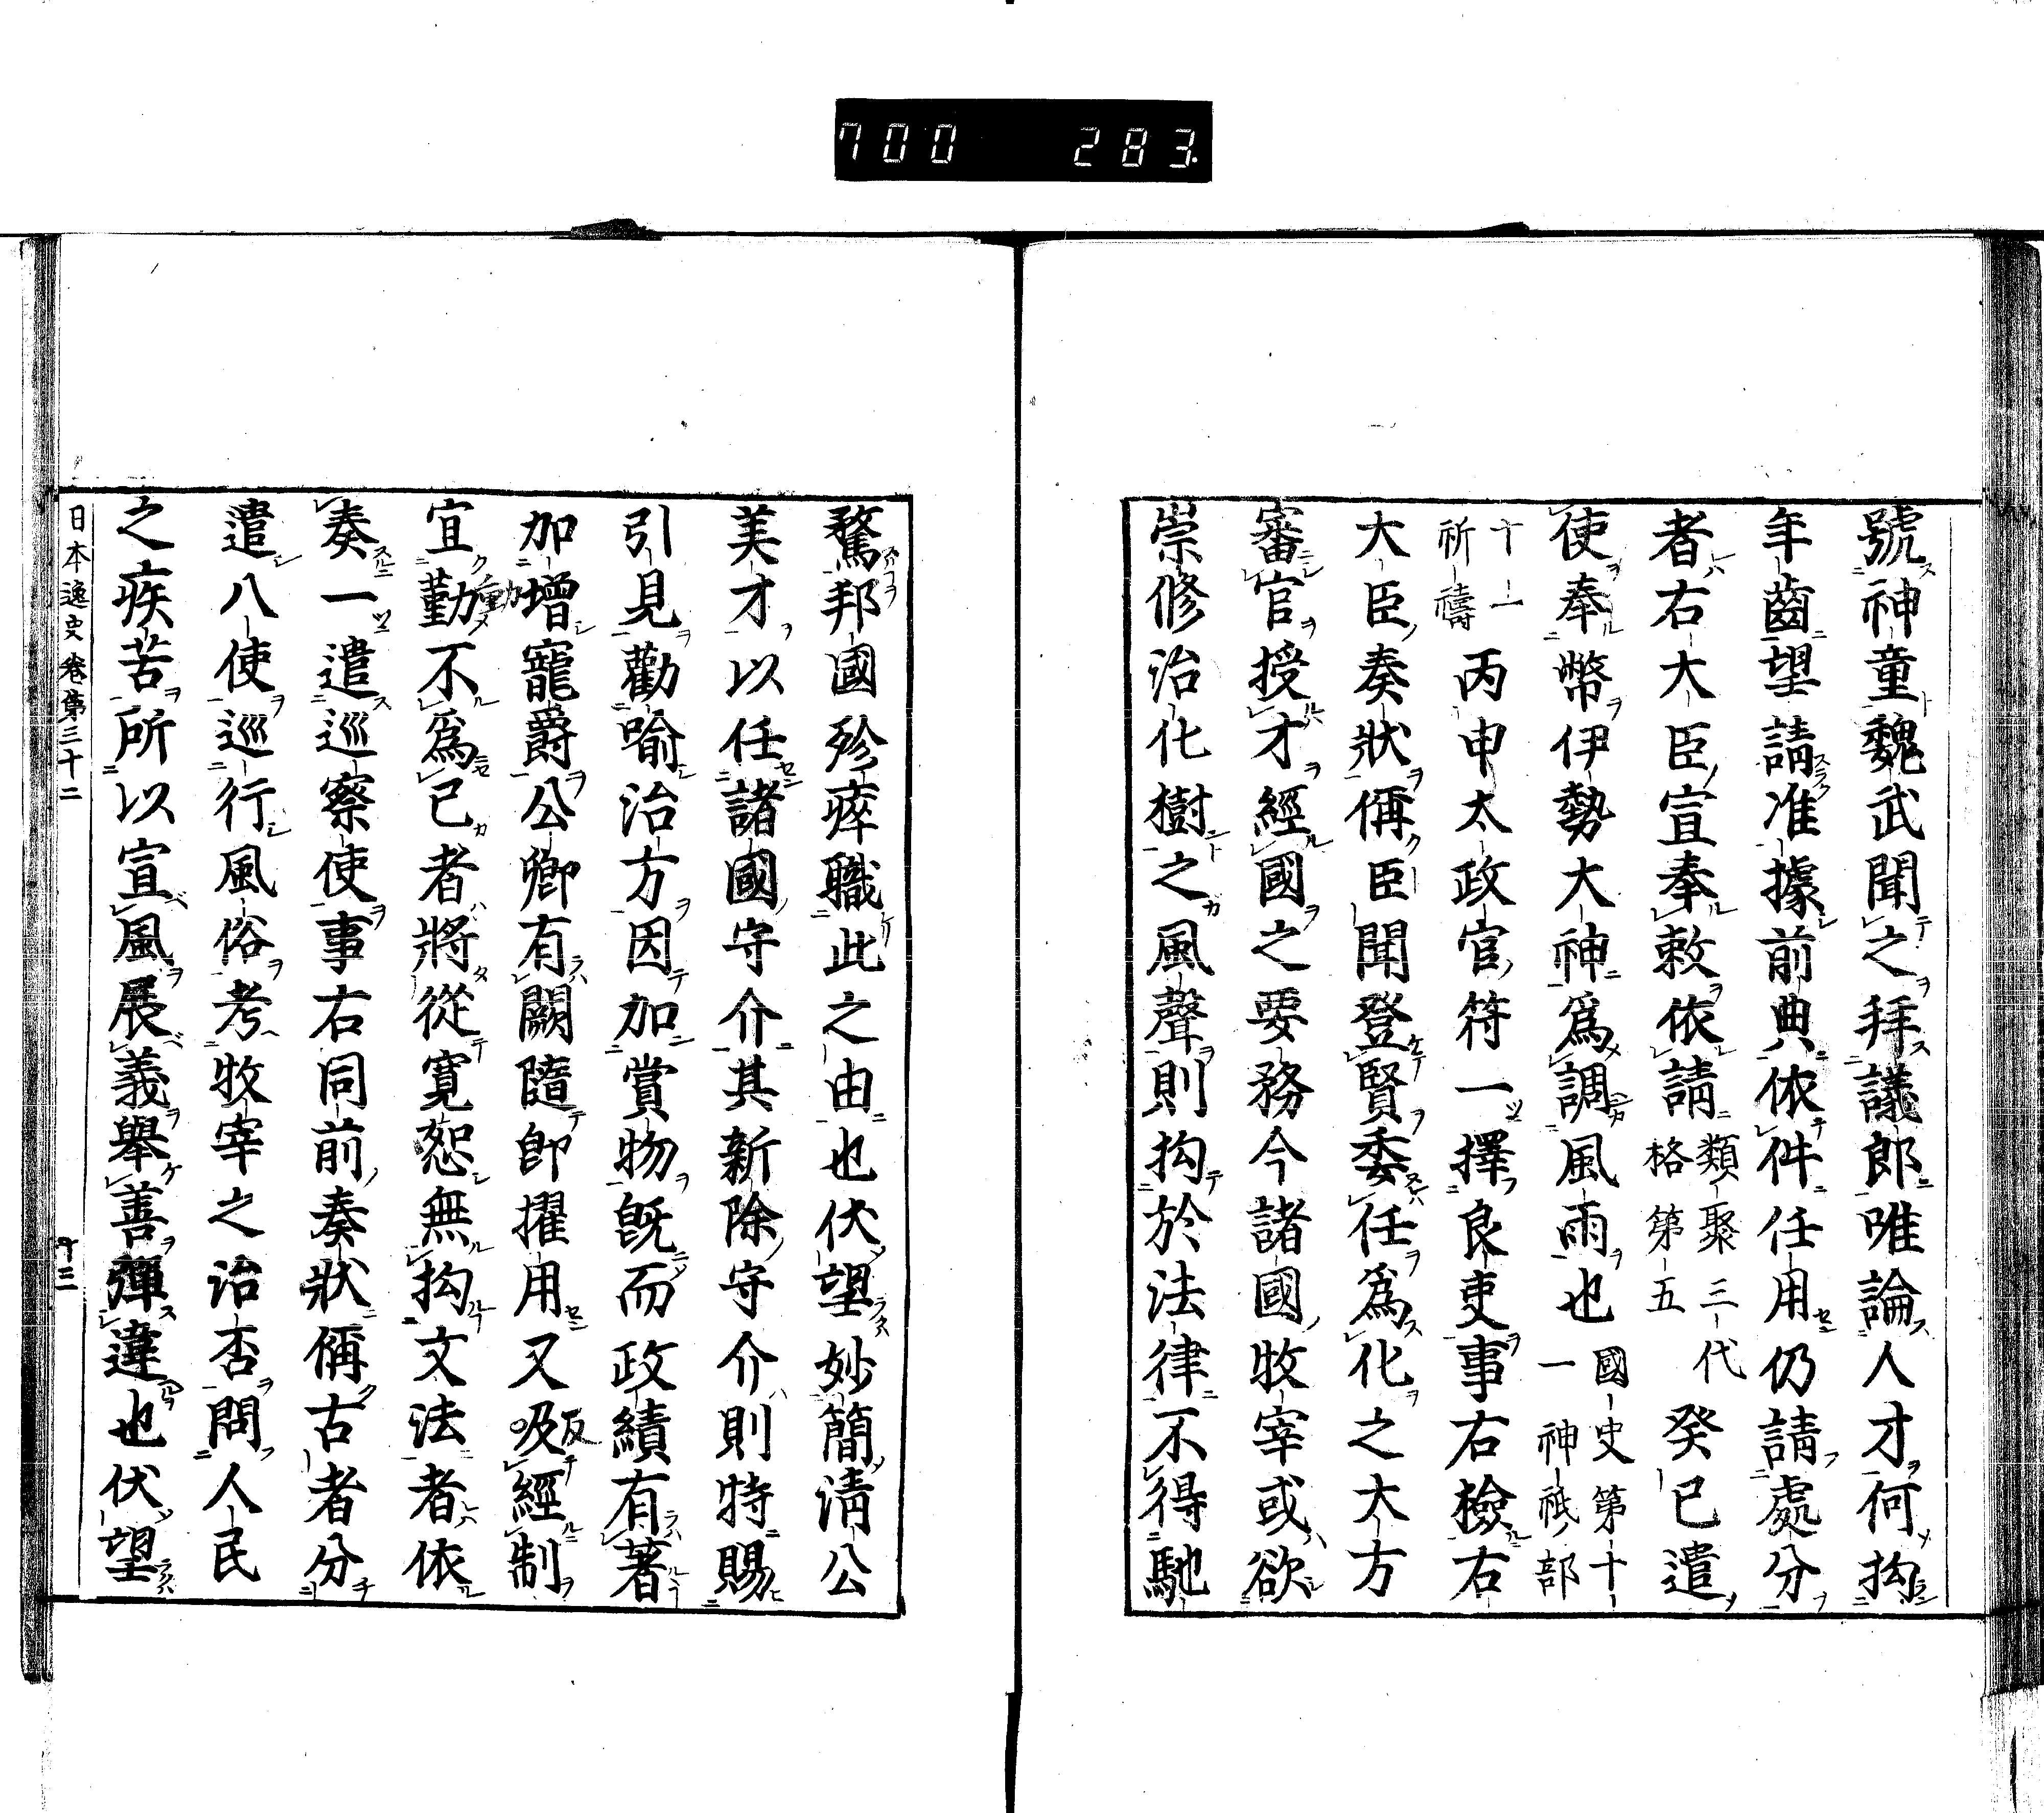 700 283
號神童魏武聞之拜議郎唯論人才何拘
年齒望請准據前典依件任用仍請處分
者右大臣宣奉敕依請類聚三代格第五癸巳遣
使奉幣伊勢大神爲調風雨也國史第十一神祇部
十一祈禱丙申太政官符一擇良吏事右檢右
大臣奏狀偁臣聞登賢委任爲化之大方
審官授才經國之要務今諸國牧宰或欲
崇修治化樹之風聲則拘於法律不得馳
騖邦國殄瘁職此之由也伏望妙簡淸公
美才以任諸國守介其新除守介則特賜
引見勸喻治方因加賞物旣而政績有著
加增寵爵公卿有闕隨卽擢用又吸反經制
宜勤動不爲己者將從寛恕無拘文法者依
奏一遣巡察使事右同前奏狀偁古者分
遣八使巡行風俗考牧宰之治否問人民
之疾苦所以宣風展義舉善彈違也伏望
日本逸史卷第三十二 十三